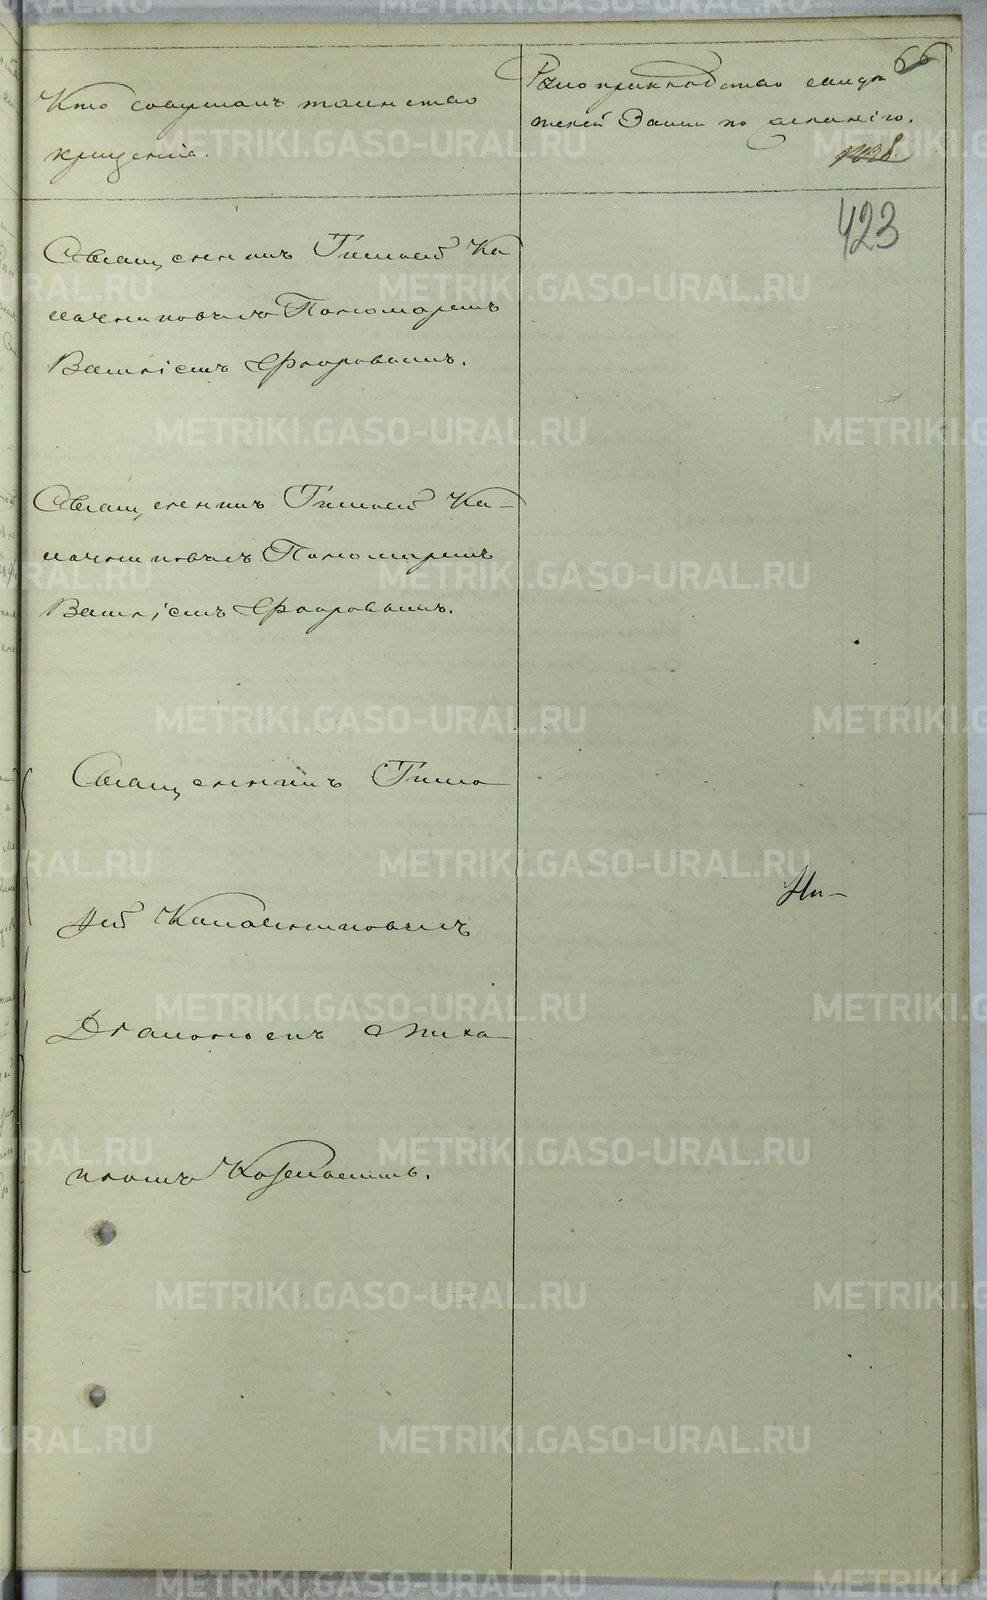 66
Кто совершалъ таинство
крещенія.
Рукоприкладство свидѣ
телей записи по желанію.
423
Священникъ Тимоѳей Ка
лачниковъ съ Пономаремъ
Василіемъ Ѳедоровымъ.
Священникъ Тимоѳей Ка-
лачниковъ съ Пономаремъ
Василіемъ Ѳедоровымъ.
Священникъ Тимо
ѳей Калачниковъ съ
Діакономъ Миха
иломъ
METRIKI.GASO-URAL.RU